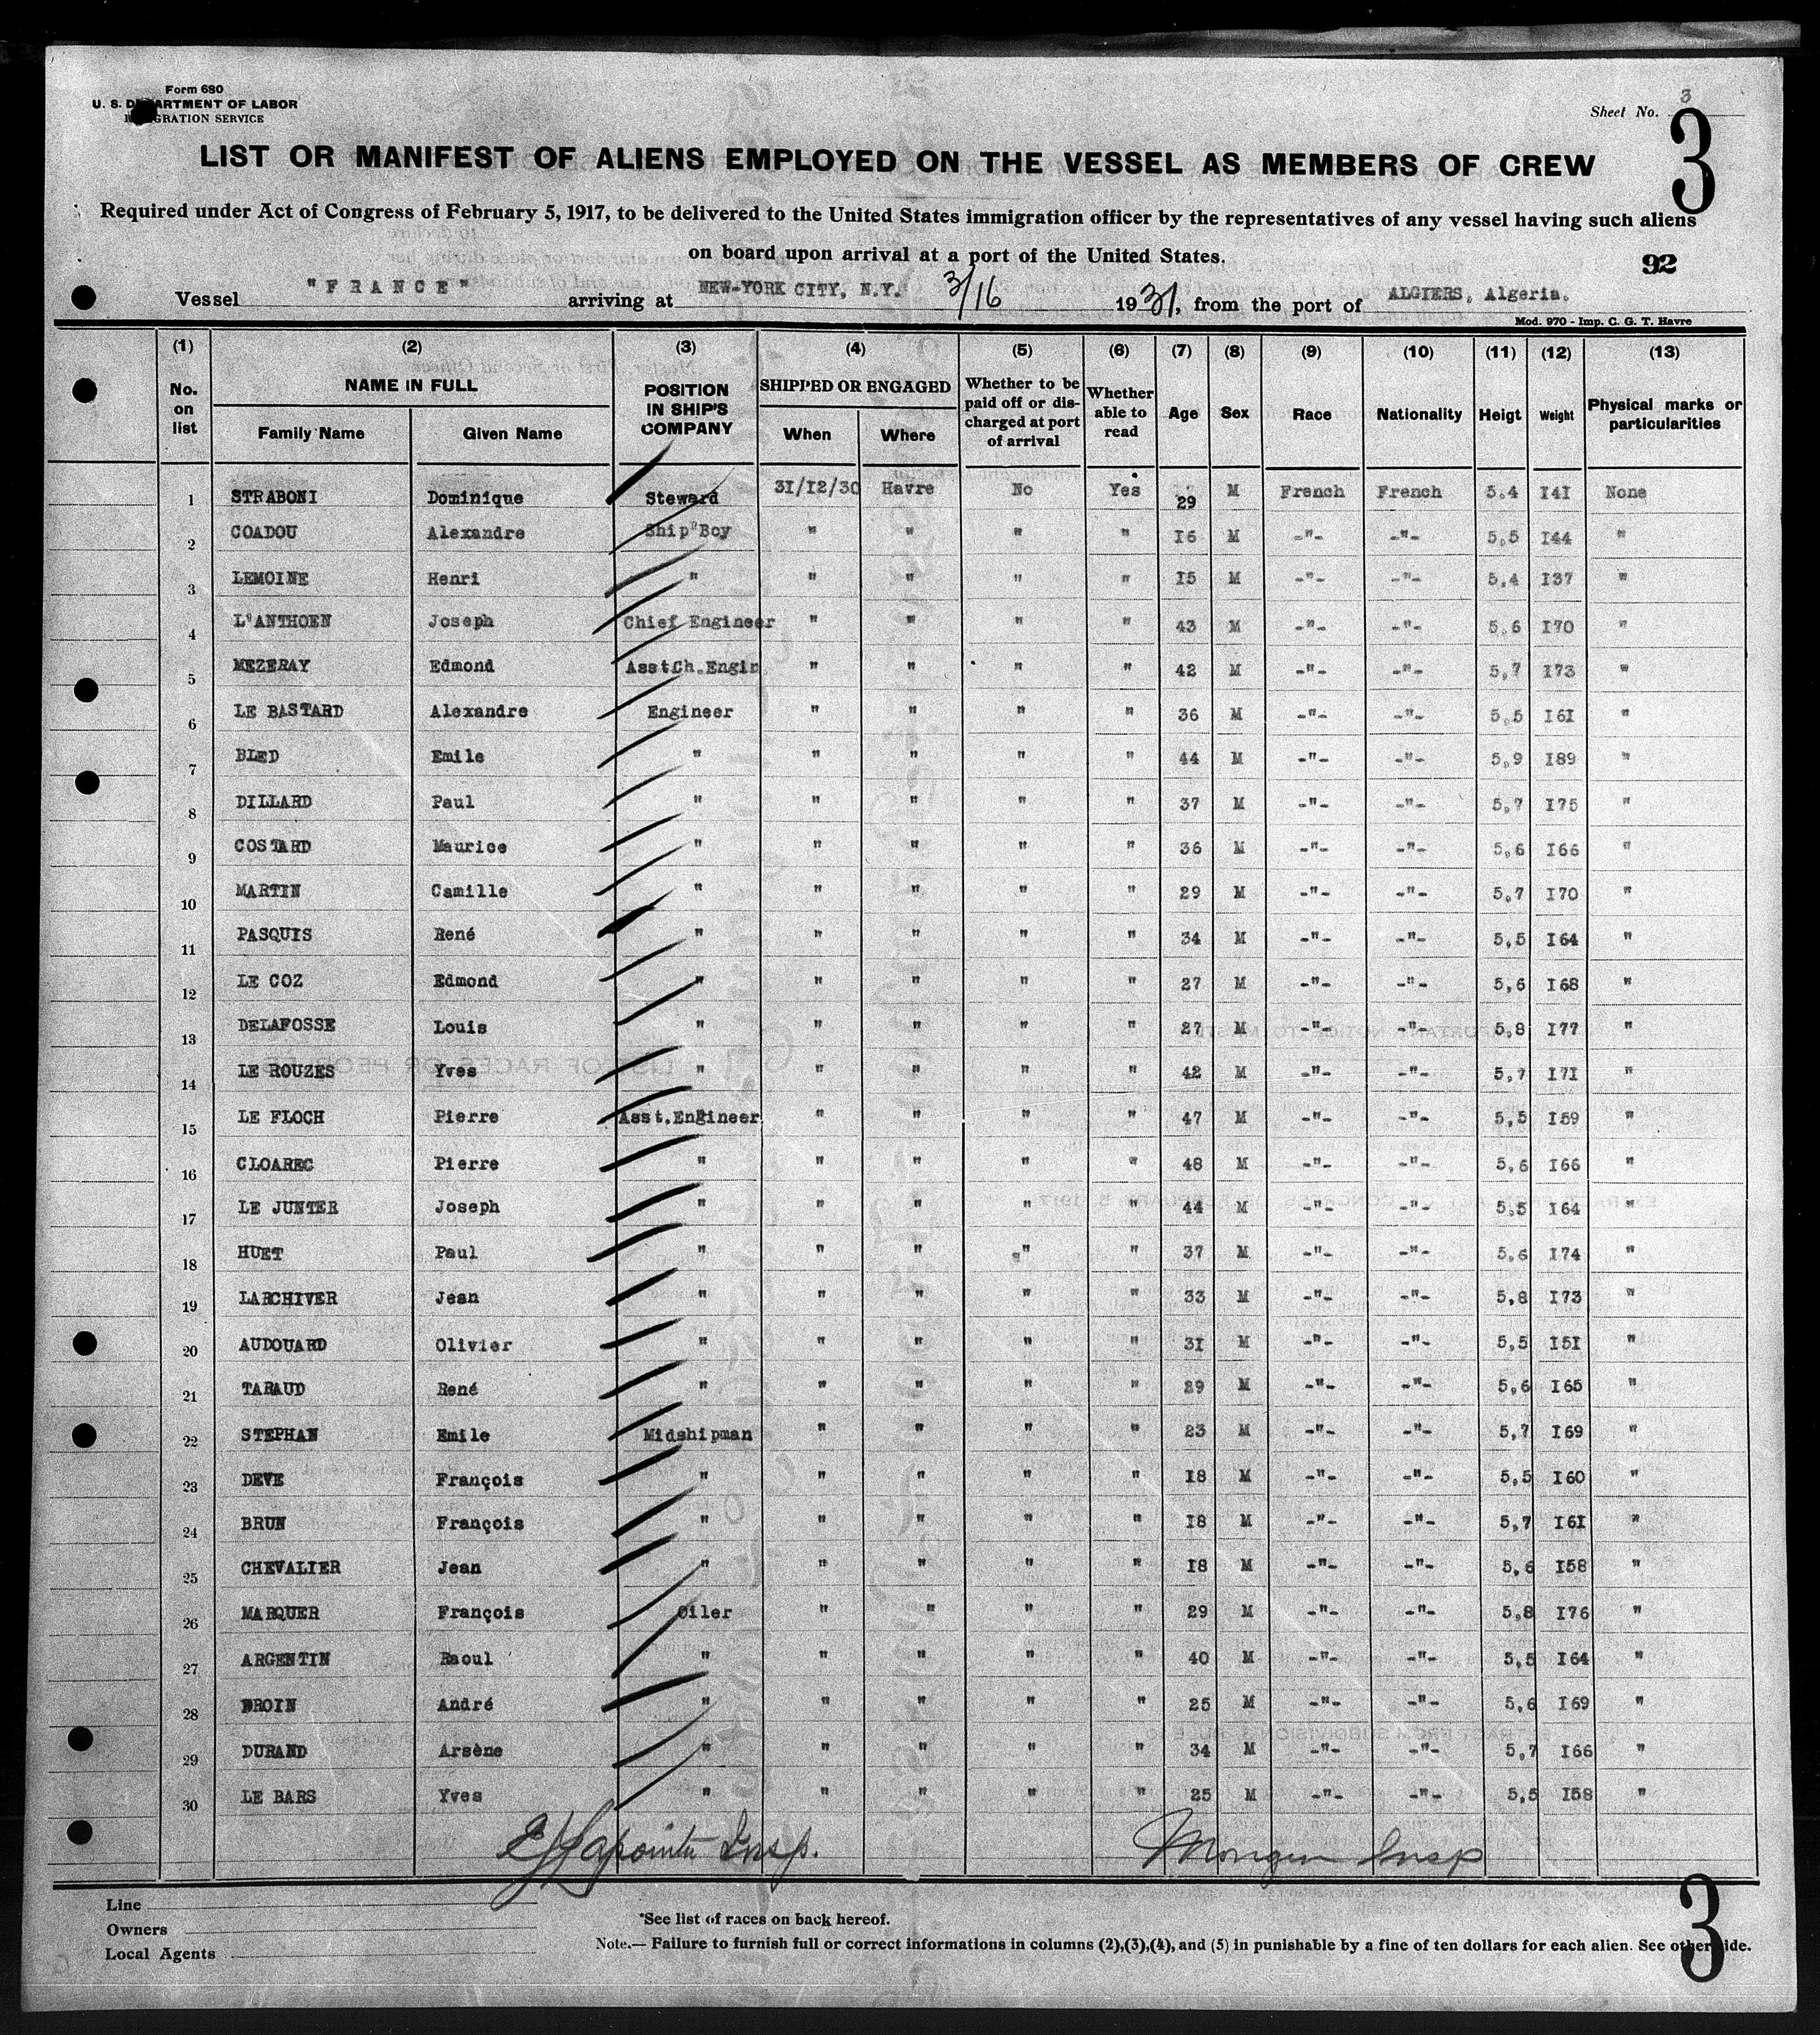 Form 680
U. S. D ARTMENT OF LABOR
GRATION SERVICE
Sheet No. 3
3
LIST OR MANIFEST OF ALIENS EMPLOYED ON THE VESSEL AS MEMBERS OF CREW
Required under Act of Congress of February 5, 1917, to be delivered to the United States immigration officer by the representatives of any vessel having such aliens
on board upon arrival at a port of the United States.
92
Vessel "FRANCE" arriving at NEW-YORK CITY, N.Y. 3/16 1931, from the port of ALGIERS, Algeria.
Mod. 970 - Imp. C. G. T. Havre
(1) (2) (3) (4) (5) (6) (7) (8) (9) (10) (11) (12) (13)
No. on list NAME IN FULL Family Name Given Name POSITION IN SHIP'S COMPANY SHIPPED OR ENGAGED When Where Whether to be paid off or discharged at port of arrival Whether able to read Age Sex Race Nationality Heigt Weight Physical marks or particularities
1 STRABONI Dominique Steward 31/12/30 Havre No Yes 29 M French French 5,4 141 None
2 COADOU Alexandre Ship"Boy " " " " 16 M -"- -"- 5,5 144 "
3 LEMOINE Henri " " " " " 15 M -"- -"- 5,4 137 "
4 L'ANTHOEN Joseph Chief Engineer " " " " 43 M -"- -"- 5,6 170 "
5 MEZERAY Edmond Asst.Ch.Engin " " " " 42 M -"- -"- 5,7 173 "
6 LE BASTARD Alexandre Engineer " " " " 36 M -"- -"- 5,5 161 "
7 BLED Emile " " " " " 44 M -"- -"- 5,9 189 "
8 DILLARD Paul " " " " " 37 M -"- -"- 5,7 175 "
9 COSTARD Maurice " " " " " 36 M -"- -"- 5,6 166 "
10 MARTIN Camille " " " " " 29 M -"- -"- 5,7 170 "
11 PASQUIS René " " " " " 34 M -"- -"- 5,5 164 "
12 LE COZ Edmond " " " " " 27 M -"- -"- 5,6 168 "
13 DELAFOSSE Louis " " " " " 27 M -"- -"- 5,8 177 "
14 LE ROUZES Yves " " " " " 42 M -"- -"- 5,7 171 "
15 LE FLOCH Pierre Asst.Engineer " " " " 47 M -"- -"- 5,5 159 "
16 CLOAREC Pierre " " " " " 48 M -"- -"- 5,6 166 "
17 LE JUNTER Joseph " " " " " 44 M -"- -"- 5,5 164 "
18 HUET Paul " " " " " 37 M -"- -"- 5,6 174 "
19 LARCHIVER Jean " " " " " 33 M -"- -"- 5,8 173 "
20 AUDOUARD Olivier " " " " " 31 M -"- -"- 5,5 151 "
21 TARAUD René " " " " " 29 M -"- -"- 5,6 165 "
22 STEPHAN Emile Midshipman " " " " 23 M -"- -"- 5,7 169 "
23 DEVE François " " " " " 18 M -"- -"- 5,5 160 "
24 BRUN François " " " " " 18 M -"- -"- 5,7 161 "
25 CHEVALIER Jean " " " " " 18 M -"- -"- 5,6 158 "
26 MARQUER François Oiler " " " " 29 M -"- -"- 5,8 176 "
27 ARGENTIN Raoul " " " " " 40 M -"- -"- 5,5 164 "
28 DROIN André " " " " " 25 M -"- -"- 5,6 169 "
29 DURAND Arsène " " " " " 34 M -"- -"- 5,7 166 "
30 LE BARS Yves " " " " " 25 M -"- -"- 5,5 158 "
E J Lapointe Insp. Insp
Line
Owners
Local Agents
*See list of races on back hereof.
Note.— Failure to furnish full or correct informations in columns (2),(3),(4), and (5) in punishable by a fine of ten dollars for each alien. See other ide.
3